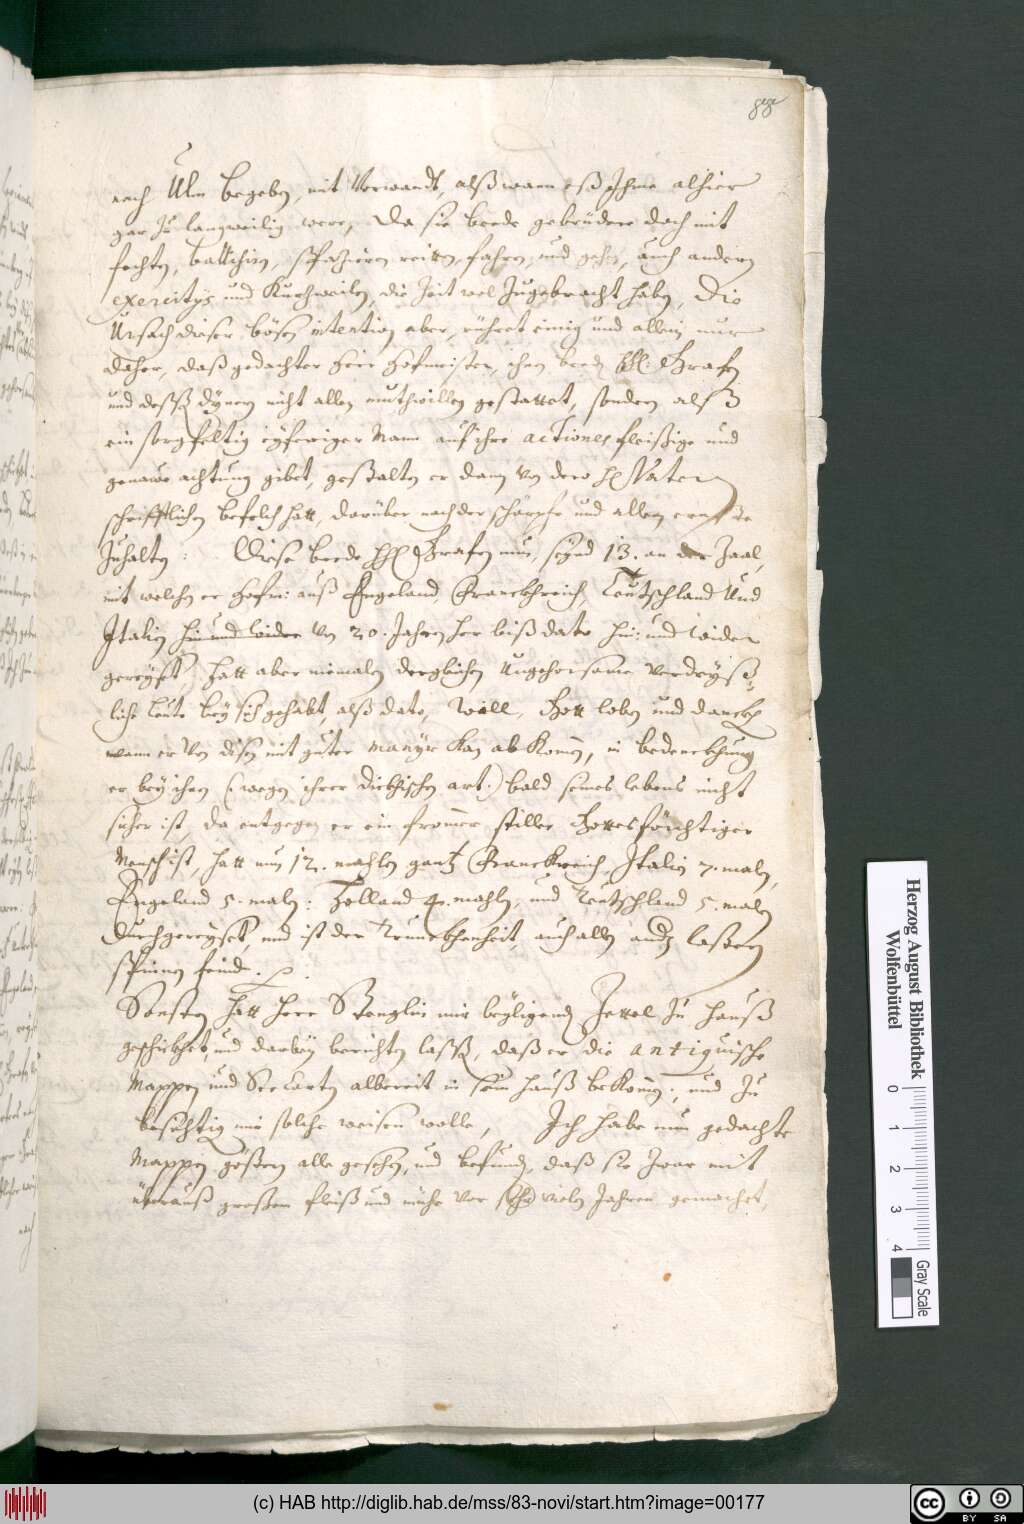 88
nach Ulm begeben, mit Vorwandt, alß wann eß Ihme alhier
gar zu langweilig were, Da sie beede gebrüdere doch mit
fechten, ballschiren, spatzieren reitten, fahren, und gehen, auch andern
exercitys und Kurtzweilen, die Zeit wol Zugebracht haben, Die
Ursach dieser bösen intention aber, rühret einig und allein nur
daher, daß gedachter Herr Hofmeister, ihen beeden Grafen
und deßen dynern nicht allen muthwillen gestattet, sondern alß
ein sorgfeltig eyferiger Mann auf ihre actiones fleißige und
genawe achtung gibet, gestalten er dann von dero H Vatern
schrifftlichen befelch hatt, darüber nach der schärpfe und allem ernste
Zuhalten: Diese beede Grafen nun, seynd 13. an der Zaal,
mit welchen er Hofm: auß Engeland, Franckhreich, Teutschland Und
Italien hin und wider von 20. Jahren her biß dato hin: und wider
gereyst, hatt aber niemalen dergleichen Ungehorsame verdryß-
liche leute bey sich gehabt, alß dato, Will, Gott loben und dancken
wann er von disen mit guter manyr kan ab kommen, in bedenckhung
er bey ihen (: wegen ihrer diebischen art:) bald seines lebens nicht
sicher ist, da entgegen er ein frommer stiller Gottesförchtiger
Mensch ist, hatt nun 12. mahlen gantz Franckreich, Italien 7. malen,
Engeland 5. malen: Holland 4. mahlen, und Teutschland 5. malen
durchgereyset, und ist der Trunckhenheit, auch allen andern lastern
spinnen feind.
Sonsten hatt Herr Stenglin mir beyligenden Zettel zu hauß
geschickhet, und darbey berichten lassen, daß er die antiquische
Mappen und See Carten albereit in sein hauß bekommen, und zu
besichtigen mir solche weisen wolle, Ich habe nun gedachte
Mappen gößern alle gesehen, und befunden, daß sie zwar mit
überauß großem fleiß und mühe vor sehr vielen Jahren gemachet,
Herzog August Bibliothek
Wolfenbüttel
0 1 2 3 4
Gray Scale
(c) HAB http://diglib.hab.de/mss/83-novi/start.htm?image=00177
cc BY SA